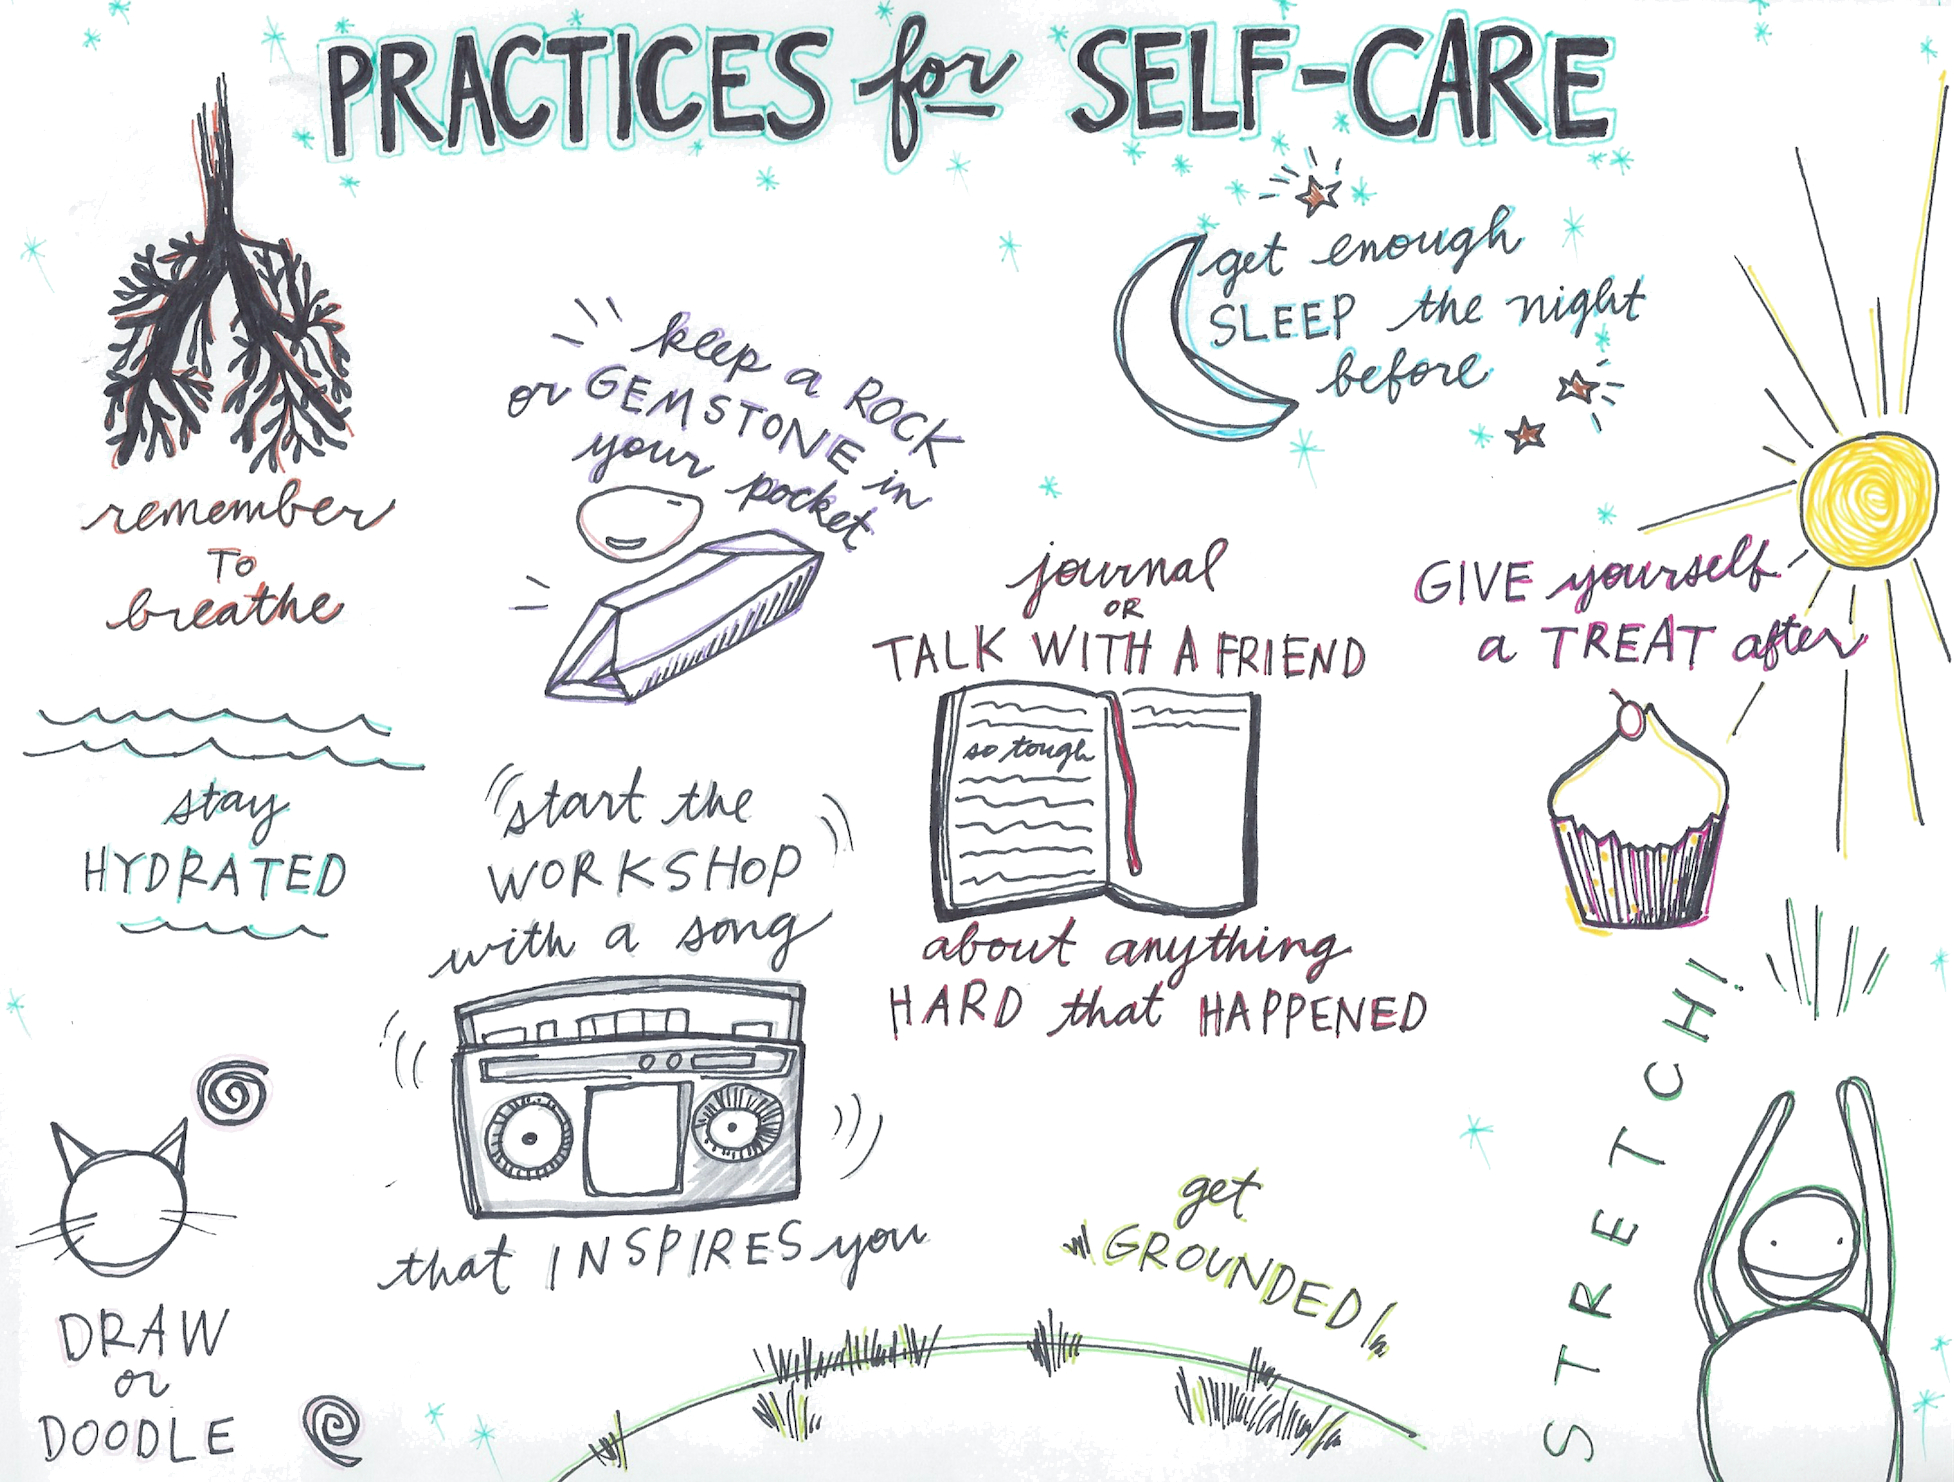 PRACTICES for SELF-CARE
remember
TO
breathe
keep a ROCK
or GEMSTONE in
your pocket
get enough
SLEEP the night
before
journal
OR
TALK WITH A FRIEND
so tough
about anything
HARD that HAPPENED
GIVE yourself
a TREAT after
stay
HYDRATED
start the
WORKSHOP
with a song
that INSPIRES you
DRAW
or
DOODLE
get
GROUNDED!
STRETCH!